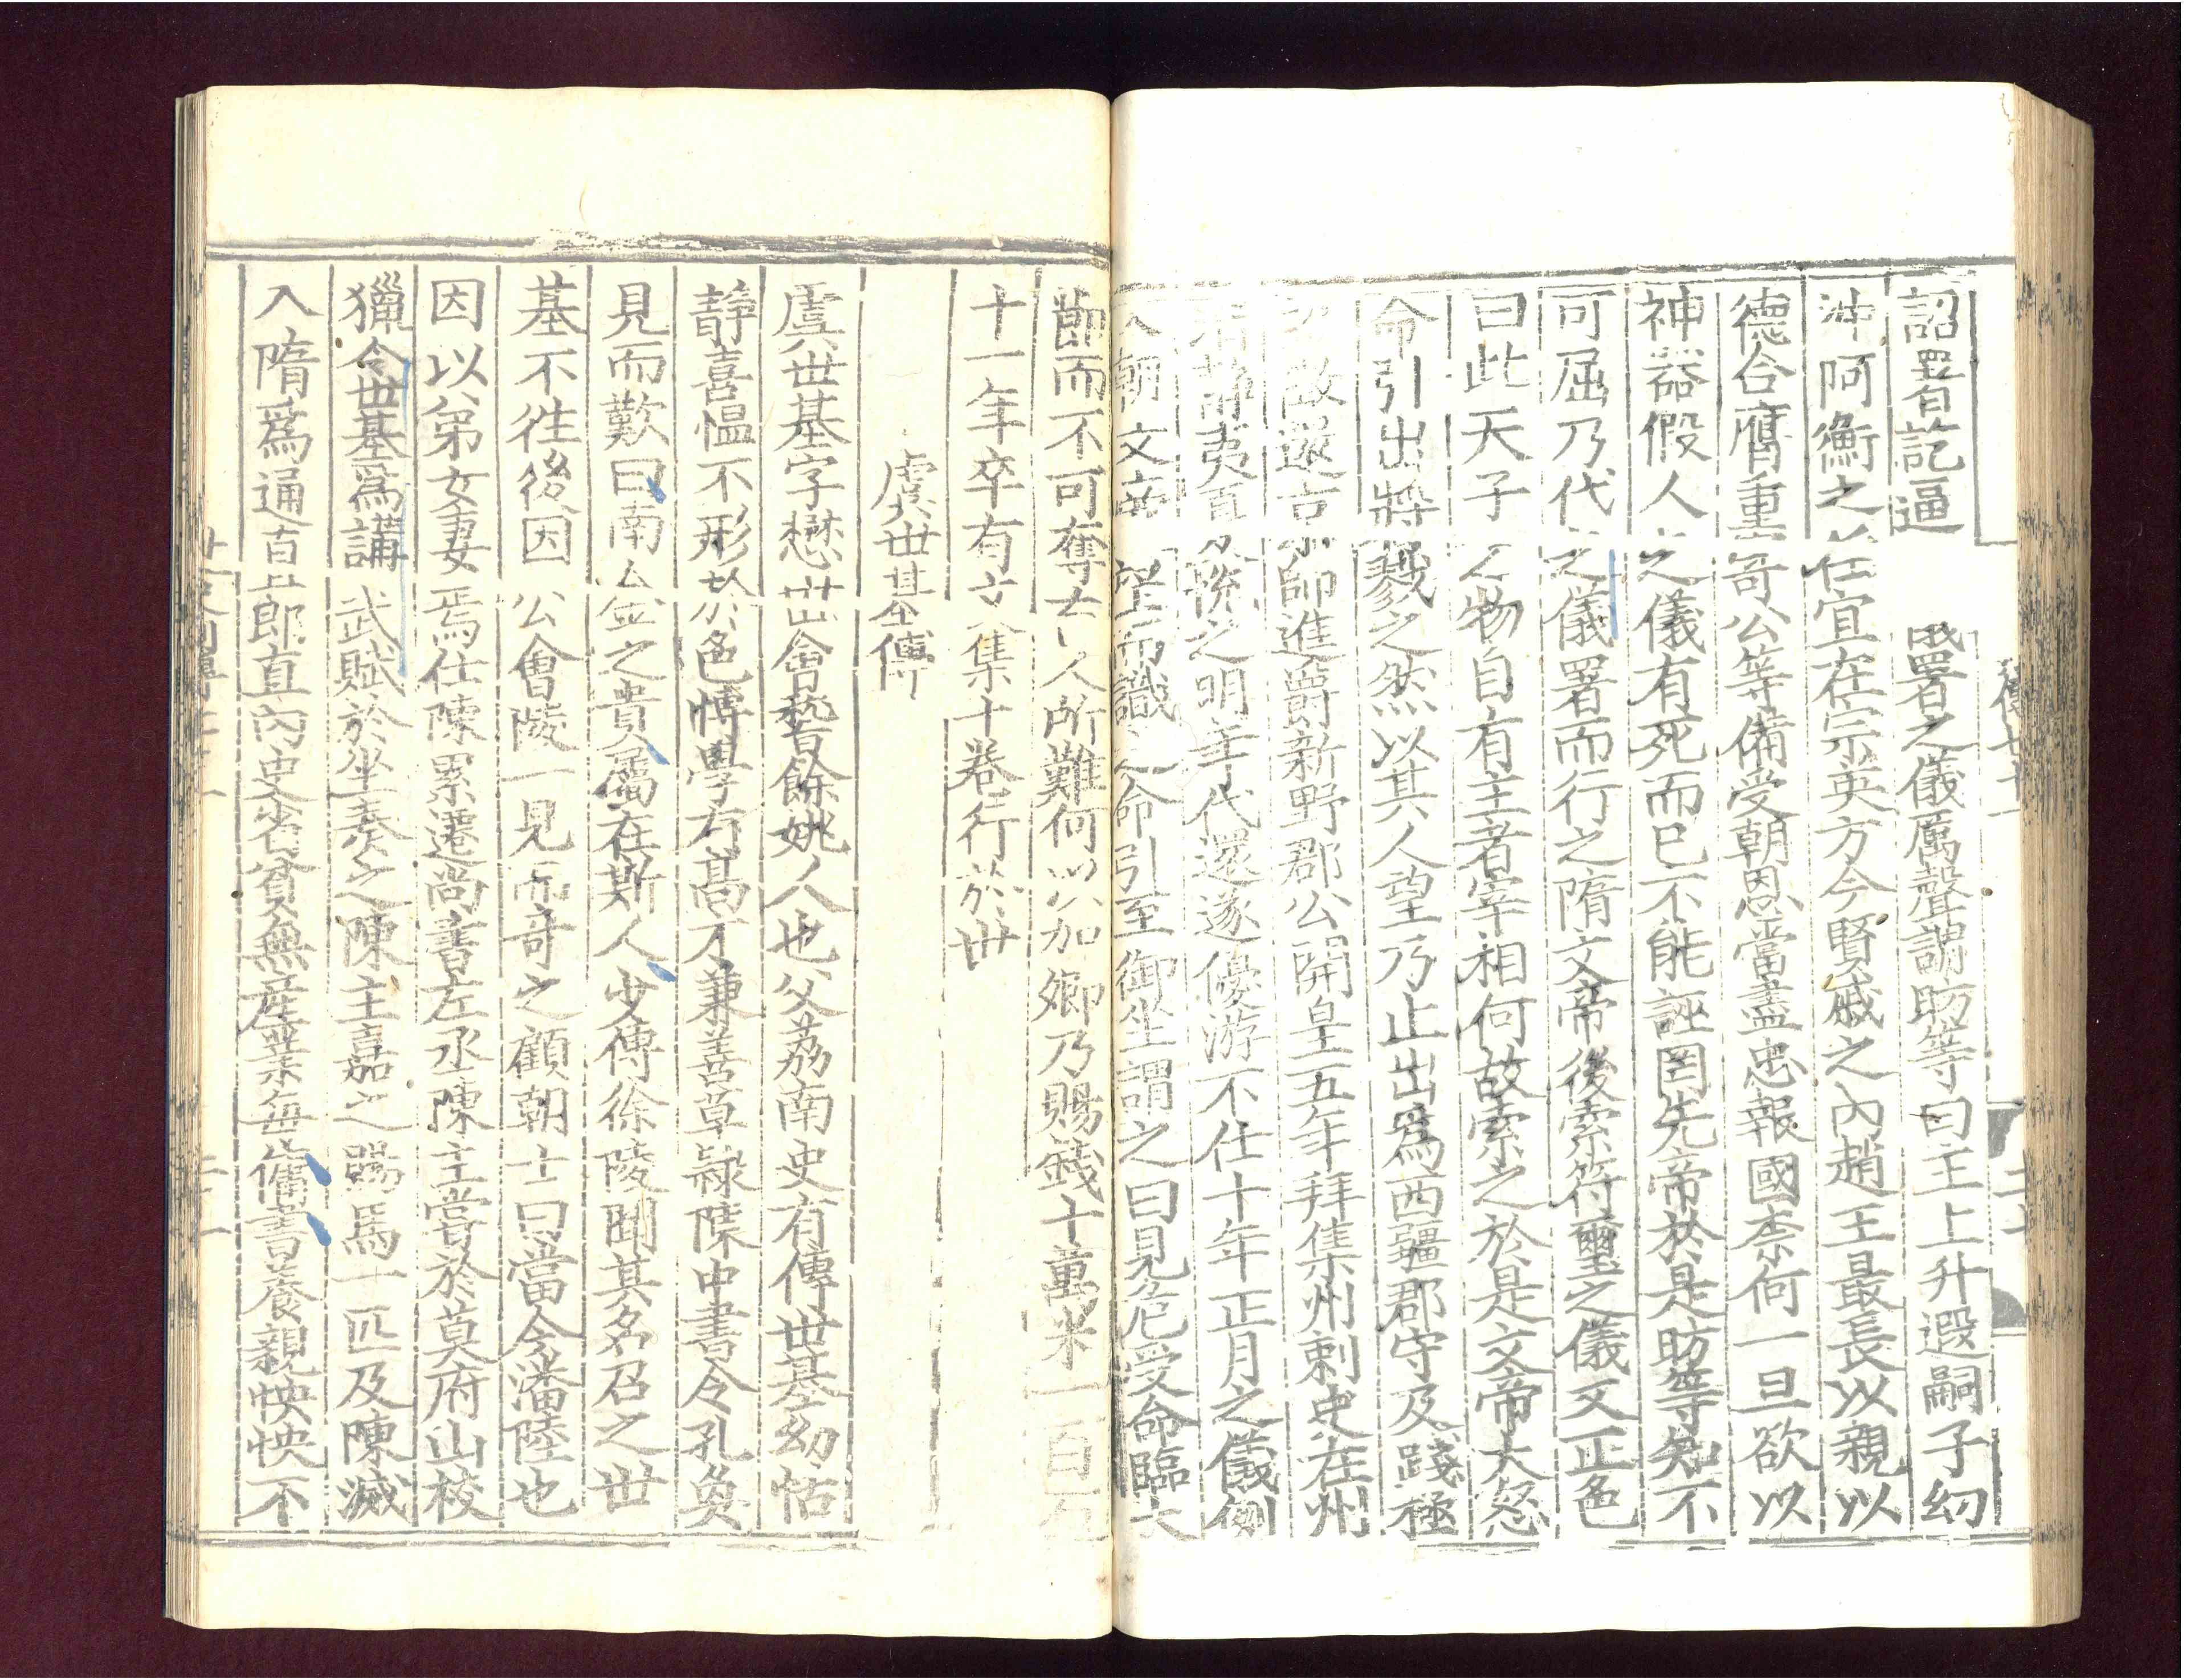 傳七十一
二十
詔署訖逼之儀署之儀厲聲謂昉等曰主上升遐嗣子幼
沖阿衡之任宜在宗英方今賢戚之內趙王最長以親以
德合膺重寄公等備受朝恩當盡忠報國柰何一旦欲以
神器假人之儀有死而已不能誣罔先帝於是昉等知不
可屈乃代之儀署而行之隋文帝後索符璽之儀又正色
曰此天子之物自有主者宰相何故索之於是文帝大怒
命引出將戮之然以其人望乃止出爲西疆郡守及踐極
詔徵還京師進爵新野郡公開皇五年拜集州刺史在州
清靜夷夏悅之明年代還遂優游不仕十年正月之儀例
入朝文帝望而識之命引至御坐謂之曰見危受命臨大
節而不可奪古人所難何以加卿乃賜錢十萬米一百石
十一年卒有文集十卷行於世
虞世基傳
虞世基字懋世會稽餘姚人也父荔南史有傳世基幼恬
靜喜慍不形於色博學有高才兼善草隸陳中書令孔奐
見而歎曰南金之貴屬在斯人少傅徐陵聞其名召之世
基不往後因公會陵一見而奇之顧朝士曰當今潘陸也
因以弟女妻焉仕陳累遷尚書左丞陳主嘗於莫府山校
獵令世基爲講武賦於坐奏之陳主嘉之賜馬一匹及陳滅
入隋爲通直郎直內史省貧無產業每傭書養親怏怏不
北史列傳七十一
二十一